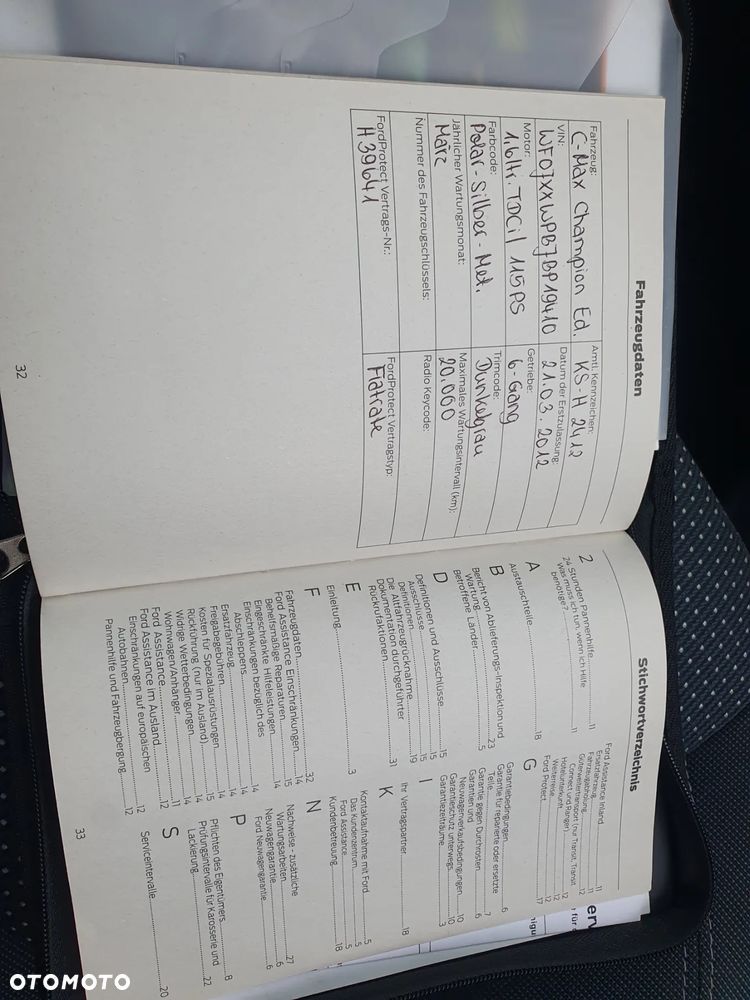 Fahrzeugdaten
Fahrzeug:
C-Max Champion Ed.
Amtl. Kennzeichen:
KS-H 2412
VIN:
WF0JXXWPBJBP19410
Datum der Erstzulassung:
21.03.2012
Motor:
1,6ltr. TDCi/ 115PS
Getriebe:
6-Gang
Farbcode:
Polar-Silber-Met.
Trimcode:
Dunkelgrau
Jährlicher Wartungsmonat:
März
Maximales Wartungsintervall (km):
20.000
Nummer des Fahrzeugschlüssels:
Radio Keycode:
FordProtect Vertrags-Nr.:
H39641
FordProtect Vertragstyp:
Flatrate
32
Stichwortverzeichnis
2
24 Stunden Pannenhilfe
Was muss ich tun, wenn ich Hilfe
benötige?.....11
A
Austauschteile.....18
B
Bericht von Ablieferungs-Inspektion und
Wartung.....23
Betroffene Länder.....5
D
Definitionen und Ausschlüsse.....15
Ausschlüsse.....15
Definitionen.....15
Die Altfahrzeugrücknahme.....19
Dokumentation durchgeführter
Rückrufaktionen.....31
E
Einleitung.....3
F
Fahrzeugdaten.....32
Ford Assistance Einschränkungen.....14
Behelfsmäßige Reparaturen.....15
Eingeschränkte Hilfeleistungen.....14
Einschränkungen bezüglich des
Abschleppens.....14
Ersatzfahrzeug.....14
Freigabegebühren.....14
Kosten für Spezialausrüstungen.....15
Rückführung (nur im Ausland).....14
Widrige Wetterbedingungen.....14
Wohnwagen/Anhänger.....14
Ford Assistance.....11
Ford Assistance im Ausland.....12
Einschränkungen auf europäischen
Autobahnen.....12
Pannenhilfe und Fahrzeugbergung.....12
Ford Assistance Inland.....11
Ersatzfahrzeug.....11
Fahrzeugabholung.....12
Güterweitertransport (nur Transit, Transit
Connect und Ranger).....12
Hotelunterkunft.....12
Weiterreise.....12
Ford Protect.....17
G
Garantiebedingungen.....6
Garantie für reparierte oder ersetzte
Teile.....7
Garantie gegen Durchrosten.....6
Garantien und
Neuwagenverkaufsbedingungen.....10
Garantieschutz unterwegs.....10
Garantiezeiträume.....3
I
Ihr Vertragspartner.....18
K
Kontaktaufnahme mit Ford.....5
Das Kundenzentrum.....5
Ford Assistance.....5
Kundenbetreuung.....18
N
Nachweise - zusätzliche
Wartungsarbeiten.....27
Neuwagengarantie.....6
Ford Neuwagengarantie.....6
P
Pflichten des Eigentümers.....8
Prüfungsintervalle für Karosserie und
Lackierung.....22
S
Serviceintervalle.....20
33
OTOMOTO